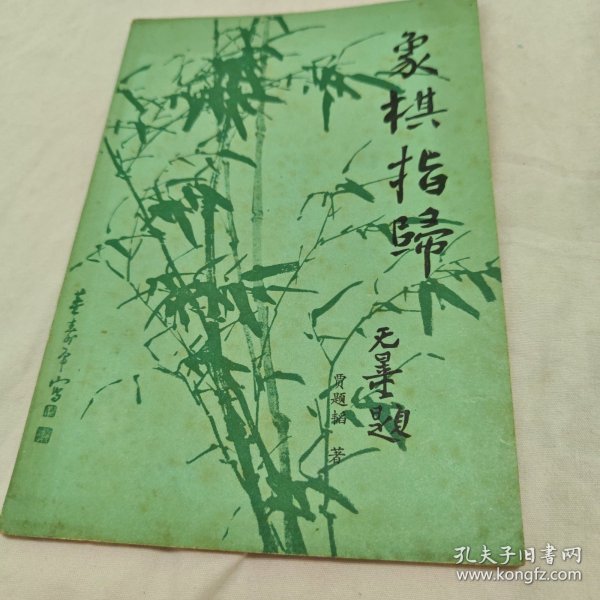 象棋指歸
无墨題
賈題韜 著
董壽平寫
孔夫子旧书网
www.kongfz.com